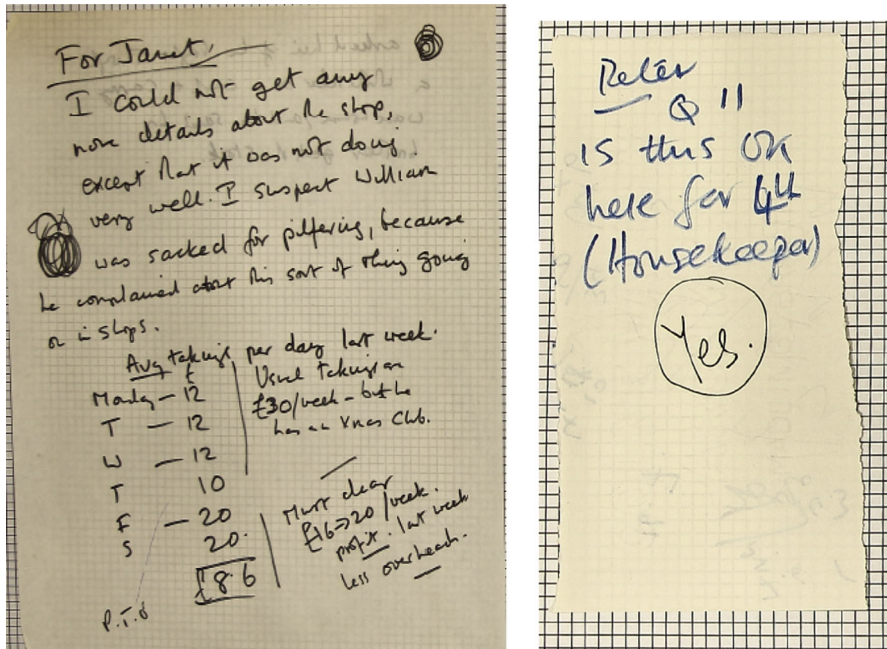 For Janet.
I could not get any
more details about the shop,
except that it was not doing
very well. I suspect William
was sacked for pilfering, because
he complained about this sort of thing going
on in shops.
Avg takings per day last week.
£
Monday – 12
T – 12
W – 12
T 10
F – 20
S 20.
£86
Usual takings are
£30/week – but he
has an Xmas Club.
Must clear
£16→20/week.
profit. last week
less overheads.
P.T.O
Peter
Q 11
is this OK
here for 44
(Housekeeper)
Yes.